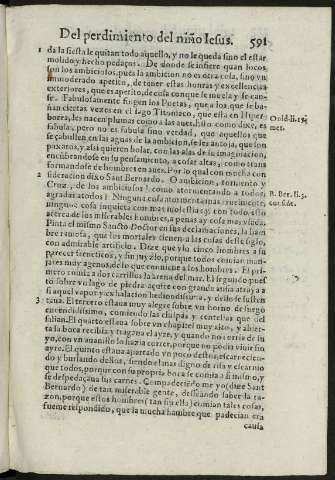 Del perdimiento del niño Iesus. 591
1 da la fiesta le quitan todo aquello, y no le queda sino el estar
molido y hecho pedaços. De donde se infiere quan locos
son los ambiciosos, pues la ambicion no es otra cosa, sino vn
immoderado apetito, de tener estas honras y excellencias
exteriores, que es apetito, de cosa que nqo le mejora y se le
se. Fabulosamente fingen los Poetas, que a los que se ba-
ñan ciertas vezes en el lago Titonizeo, que esta en Hiper
borea, les nacen plumas como a las aues, hizo como dize, es Ouid. li. 15.
fabula, pero no es fabula sino verdad, que aquellos que met.
se çabullen en las aguas de la ambicion, se les antoja, que son
paxaros, y assi quieren bolar, con las alas de su imaginacion,
encumbrandose en su pensamiento, a cosas altas, como trans
formandose de hombres en aues. Por lo qual con mucha con
2 sideracion dixo Sant Bernardo. O ambicion, tormento y
Cruz, de los ambiciosos! como atormentando a todos, B. Ber. li. 3.
agradas a todos! Ninguna cosa atormenta mas cruelmente, conside.
ninguna cosa inquieta con mas molestias: y con todo esso
acerca de los miserables hombres, a penas ay cosa mas vsada.
Pinta el mismo Sancto Doctor en sus declamaciones, la ham
bre rauiosa, que los mortales tienen a las cosas deste siglo,
con admirable artificio. Dize que vio cinco hombres a su
parecer freneticos, y sin juyzio, porque todos comian man-
jares muy agenos, de lo que conuiene a los hombres. El pri-
mero comia a dos carrillos la arena del mar. El segundo pues
to sobre vn lago de piedra açufre con grande ansia atrayã a
si aquel vapor y exhalacion hediondissima, y dello se susten
3 taua. El tercero estaua muy alegre sobre vn horno de fuego
encendidissimo, comiendo las chispas y centellas que del
salian. El quarto estaua sobre vn chapitel muy alto, y abier-
ta la boca recibia y tragaua el ayre, y quando no corria de su-
yo, con vn auanillo lo hazia correr, porque no podia viuir sin
ayre. El quinto estaua apartado vn poco destos, escarnecien-
do y burlando dellos, siendo el mas digno de risa y escarnio
que todos, porque con su propria boca se comia a si mismo, y
se despedaçaua sus carnes. Compadecido me yo (dize Sant
Bernardo) de tan miserable gente, desseando saber la ra-
zon, porque estos hombres tan sin asco comian tales cosas,
fueme respondido, que la mucha hambre que padecian era
causa